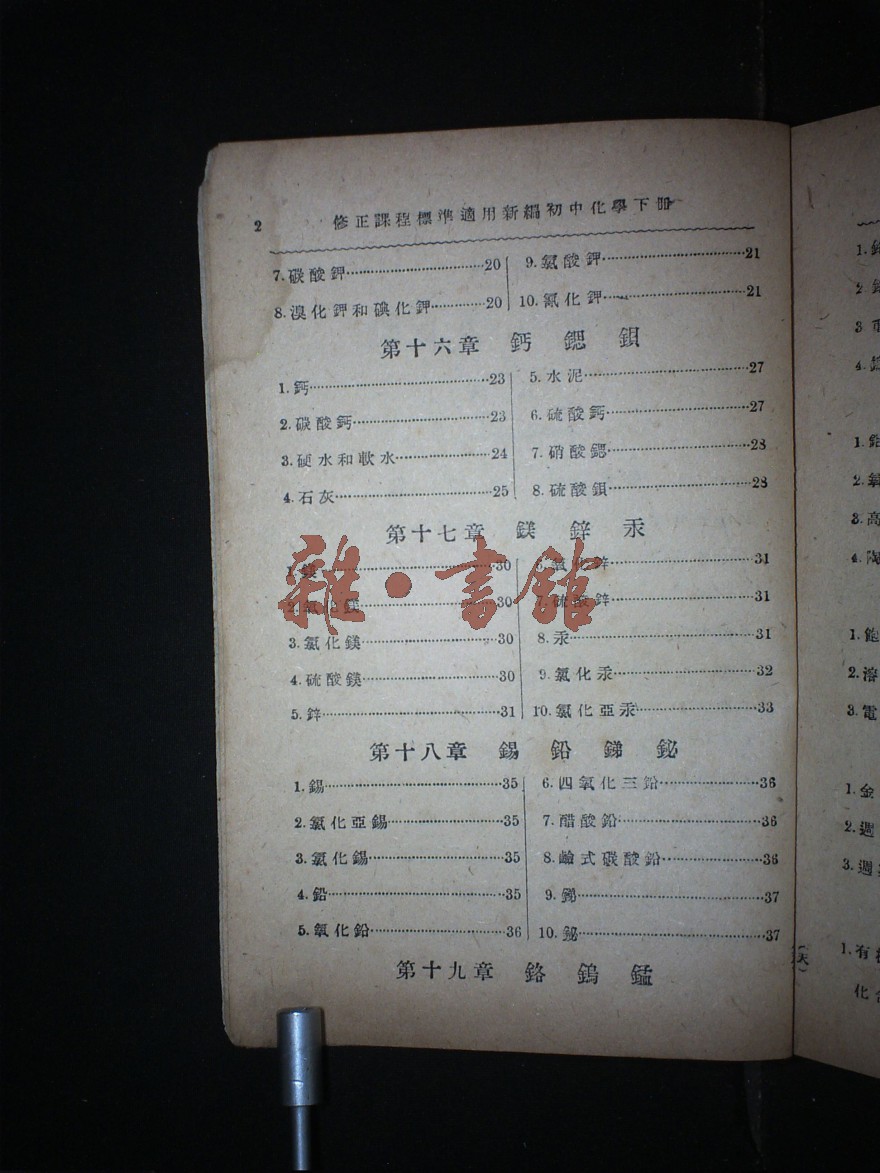 2 修正課程標準適用新編初中化學下册
7.碳酸鉀……20
8.溴化鉀和碘化鉀……20
9.氯酸鉀……21
10.氰化鉀……21
第十六章 鈣 鍶 鋇
1.鈣……23
2.碳酸鈣……23
3.硬水和軟水……24
4.石灰……25
5.水泥……27
6.硫酸鈣……27
7.硝酸鍶……28
8.硫酸鋇……28
第十七章 鎂 鋅 汞
1.鎂……30
2.氧化鎂……30
3.氯化鎂……30
4.硫酸鎂……30
5.鋅……31
6.氧化鋅……31
7.硫酸鋅……31
8.汞……31
9.氯化汞……32
10.氯化亞汞……33
雜·書館
第十八章 錫 鉛 銻 鉍
1.錫……35
2.氯化亞錫……35
3.氯化錫……35
4.鉛……35
5.氧化鉛……36
6.四氧化三鉛……36
7.醋酸鉛……36
8.鹼式碳酸鉛……36
9.銻……37
10.鉍……37
第十九章 鉻 鎢 錳
1.
2.
3.重
4.
1.鈷
2.氧
3.高
4.陶
1.飽
2.溶
3.電
1.金
2.週
3.週
1.有
化合